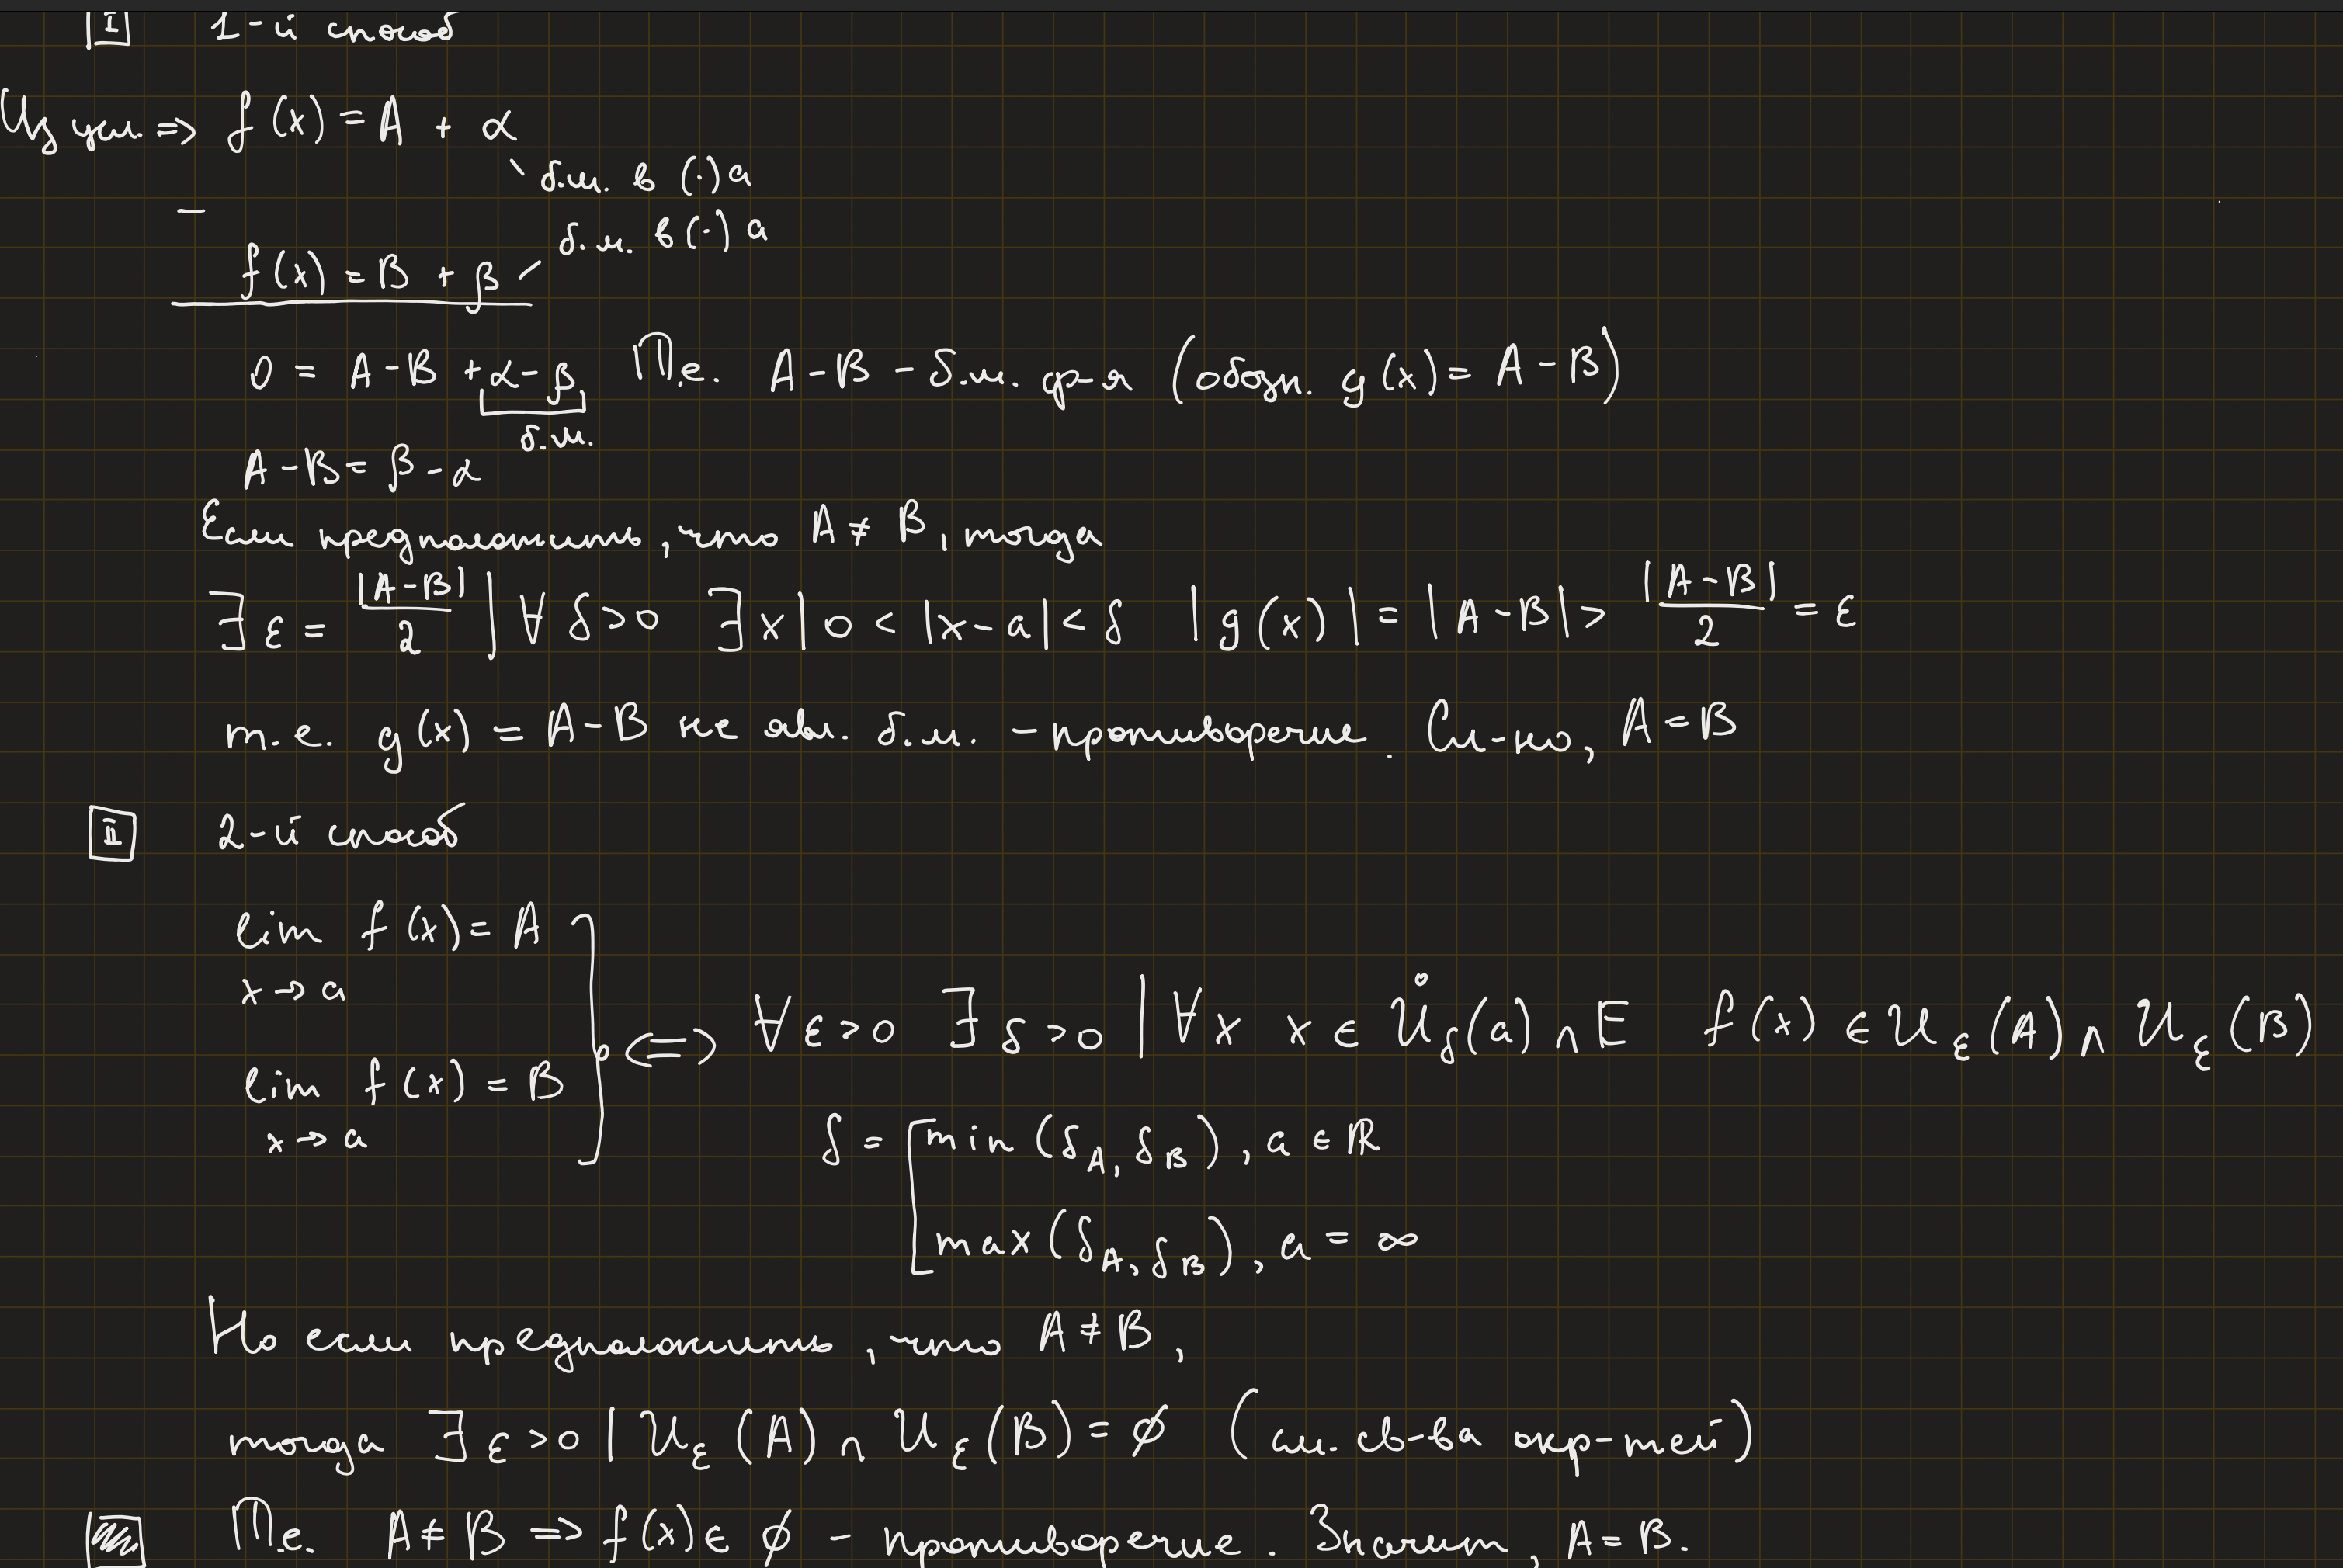 I 1-й способ
Из усл. => f(x) = A + α
б.м. в (·) a
—
б.м. в (·) a
f(x) = B + β
0 = A - B + α - β Т.е. A - B - б.м. ф-я (обозн. g(x) = A - B)
б.м.
A - B = β - α
Если предположить, что A ≠ B, тогда
∃ ε = |A - B| / 2 | ∀ δ > 0 ∃ x | 0 < |x - a| < δ |g(x)| = |A - B| > |A - B| / 2 = ε
т.е. g(x) = A - B не явл. б.м. - противоречие. Сл-но, A = B
II 2-й способ
lim f(x) = A
x → a
<=> ∀ ε > 0 ∃ δ > 0 | ∀ x x ∈ Ů_δ(a) ∩ E f(x) ∈ U_ε(A) ∩ U_ε(B)
lim f(x) = B
x → a
δ = [ min (δ_A, δ_B), a ∈ ℝ
max (δ_A, δ_B), a = ∞
Но если предположить, что A ≠ B,
тогда ∃ ε > 0 | U_ε(A) ∩ U_ε(B) = ∅ (см. св-ва окр-тей)
Т.е. A ≠ B => f(x) ∈ ∅ - противоречие. Значит, A = B.